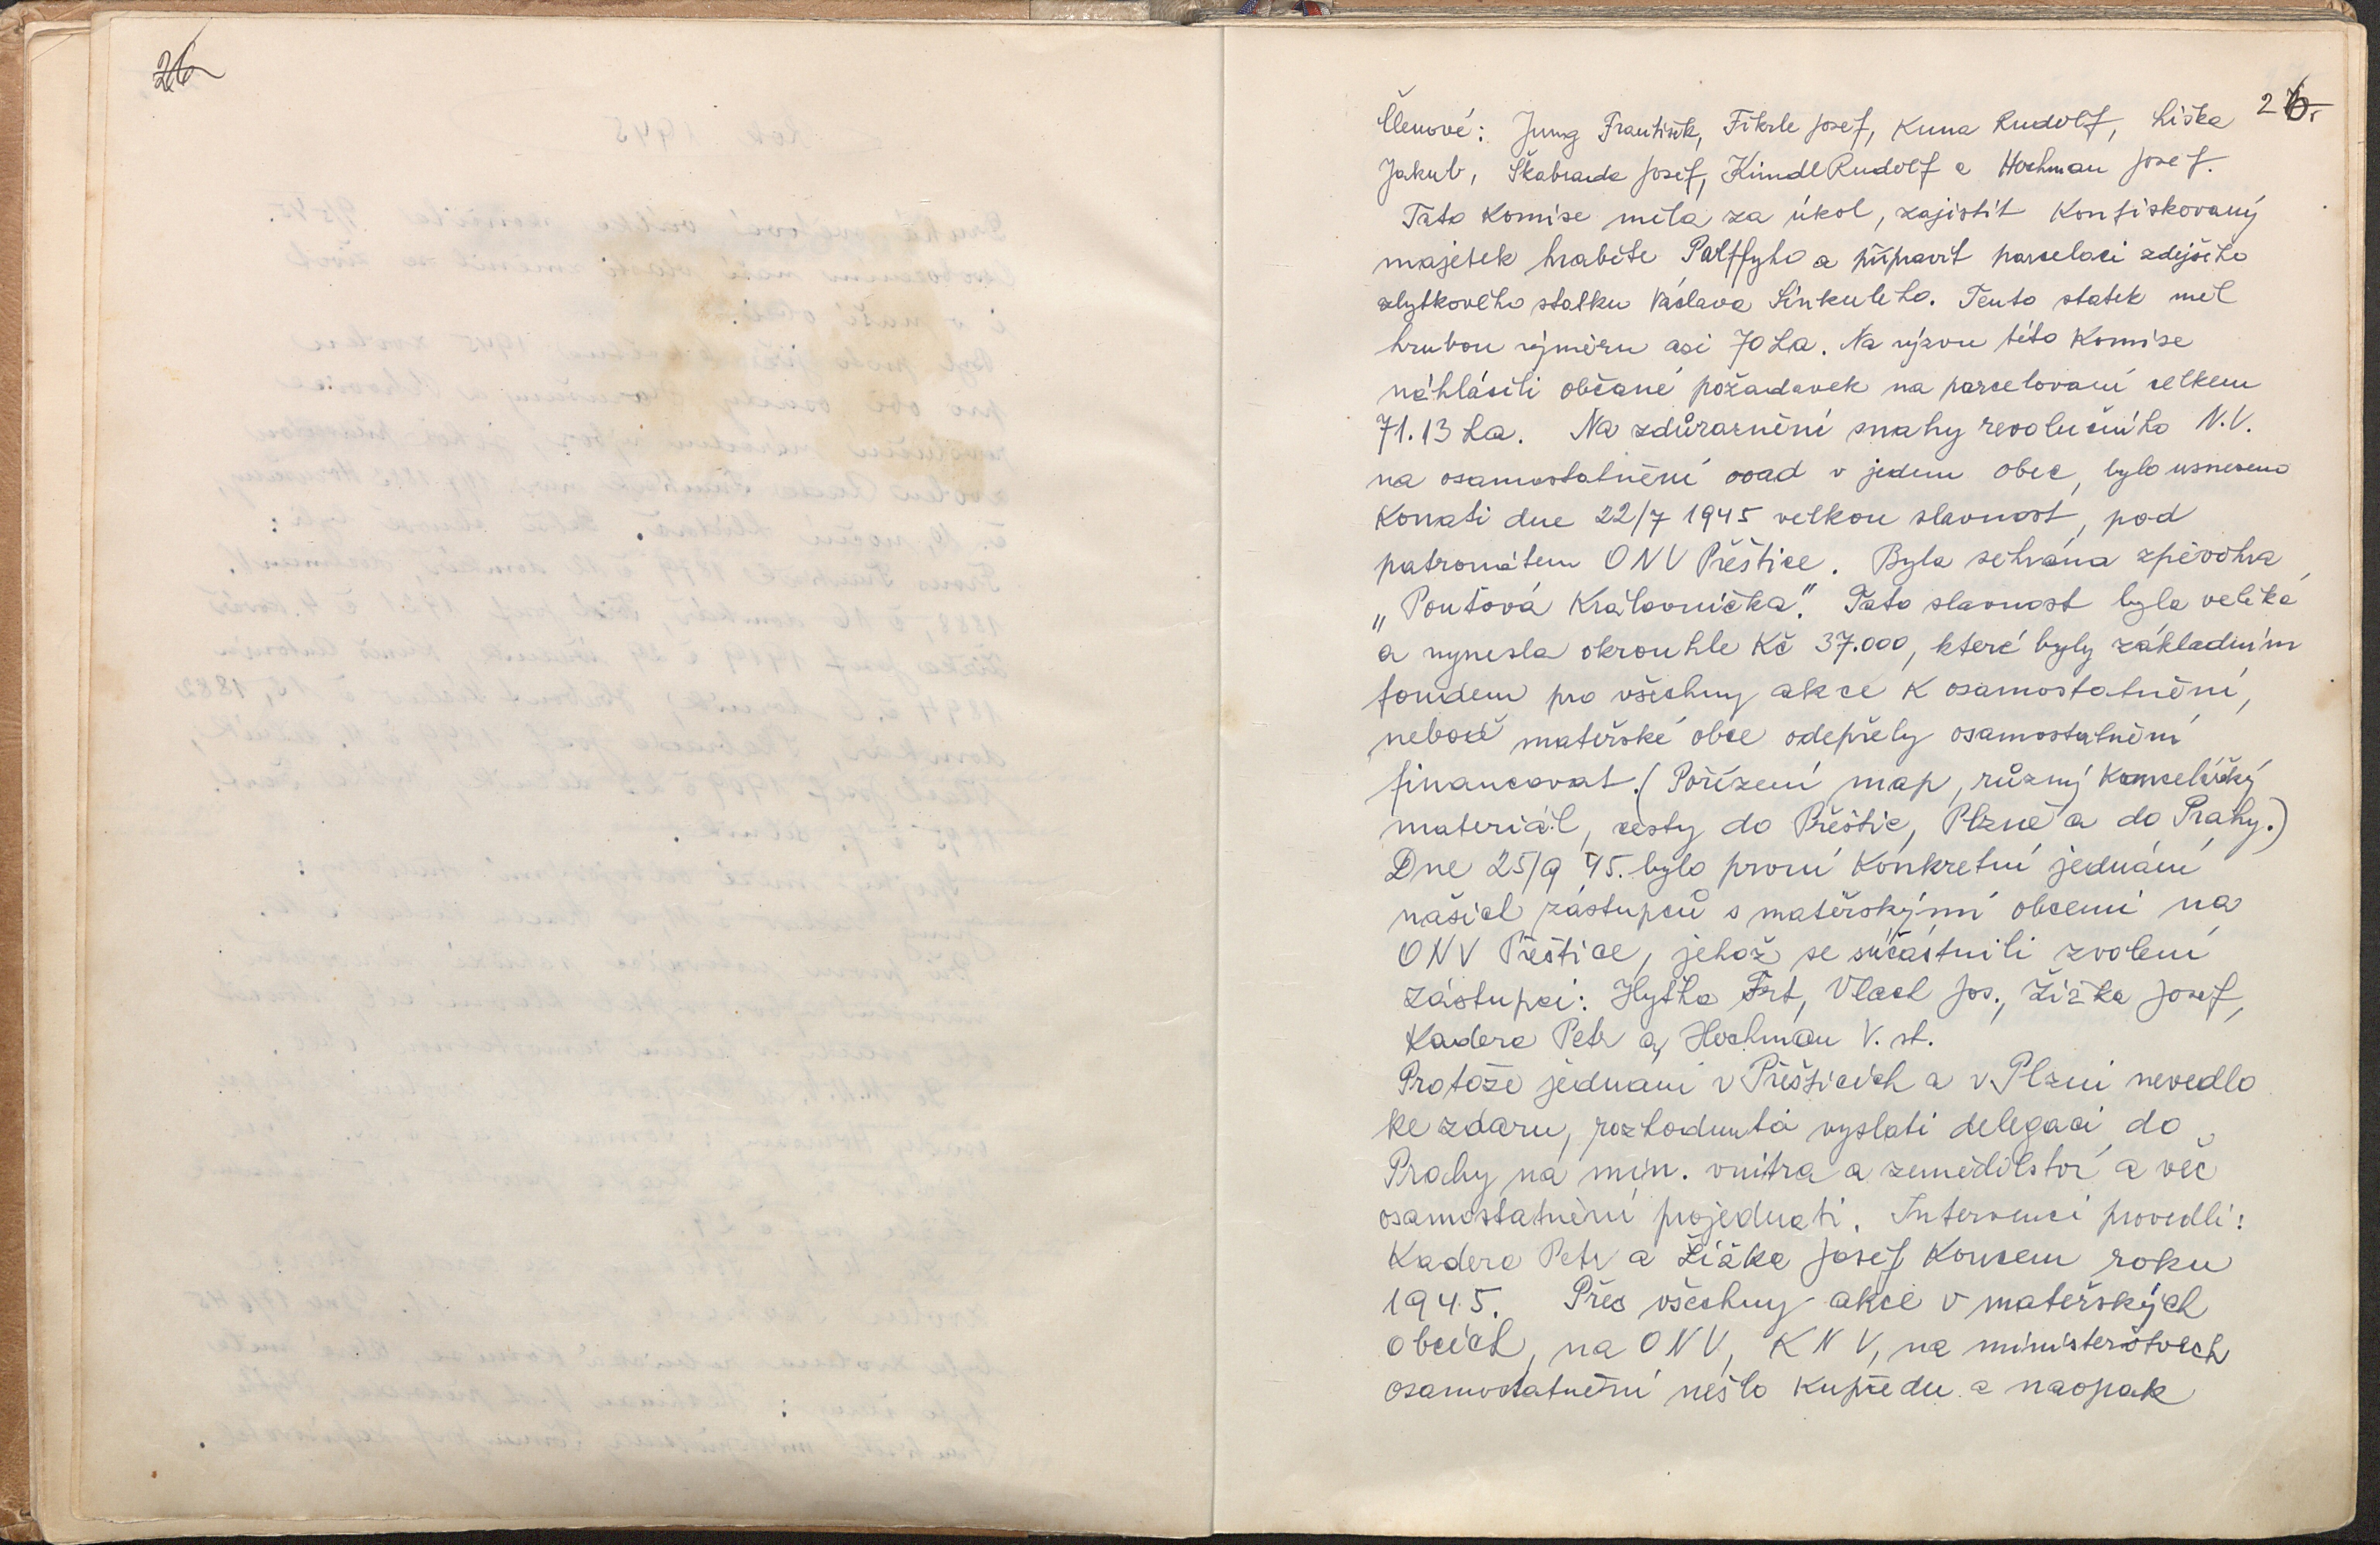 26
26.
Členové: Jung František, Fikrle Josef, Kuna Rudolf, Liška
Jakub, Škabrada Josef, Kindl Rudolf a Hochman Josef.
Tato komise měla za úkol, zajistit konfiskovaný
majetek hraběte Palffyho a připravit parcelaci zdejšího
zbytkového statku Václava Sinkuleho. Tento statek měl
hrubou výměru asi 70 ha. Na výzvu této komise
náhlásili občané požadavek na parcelovaní celkem
71.13 ha. Na zdůraznění snahy revolučního N.V.
na osamostatnění osad v jednu obec, bylo usneseno
konati dne 22/7 1945 velkou slavnost, pod
patronátem ONV Přeštice. Byla sehrána zpěvohra
„Pouťová Královnička". Tato slavnost byla veliká
a vynesla okrouhle Kč 37.000, které byly základním
fondem pro všechny akce k osamostatnění,
neboť mateřské obce odepřely osamostatnění
financovat. (Pořízení map, různý kancelářský
materiál, cesty do Přeštic, Plzně a do Prahy.)
Dne 25/9 45. bylo první konkretní jednání
našich zástupců s mateřskými obcemi na
ONV Přeštice, jehož se súčástnili zvolení
zástupci: Hytha Frt, Vlach Jos., Žižka Josef,
Kadera Petr a Hochman V. st.
Protože jednaní v Přešticích a v Plzni nevedlo
ke zdaru, rozhodnuto vyslati delegaci do
Prahy na min. vnitra a zemědělství a věc
osamostatnění projednati. Intervenci provedli:
Kadera Petr a Žižka Josef koncem roku
1945. Přes všechny akce v mateřských
obcích, na ONV, KNV, na ministerstvech
osamostatnění nešlo kupředu a naopak